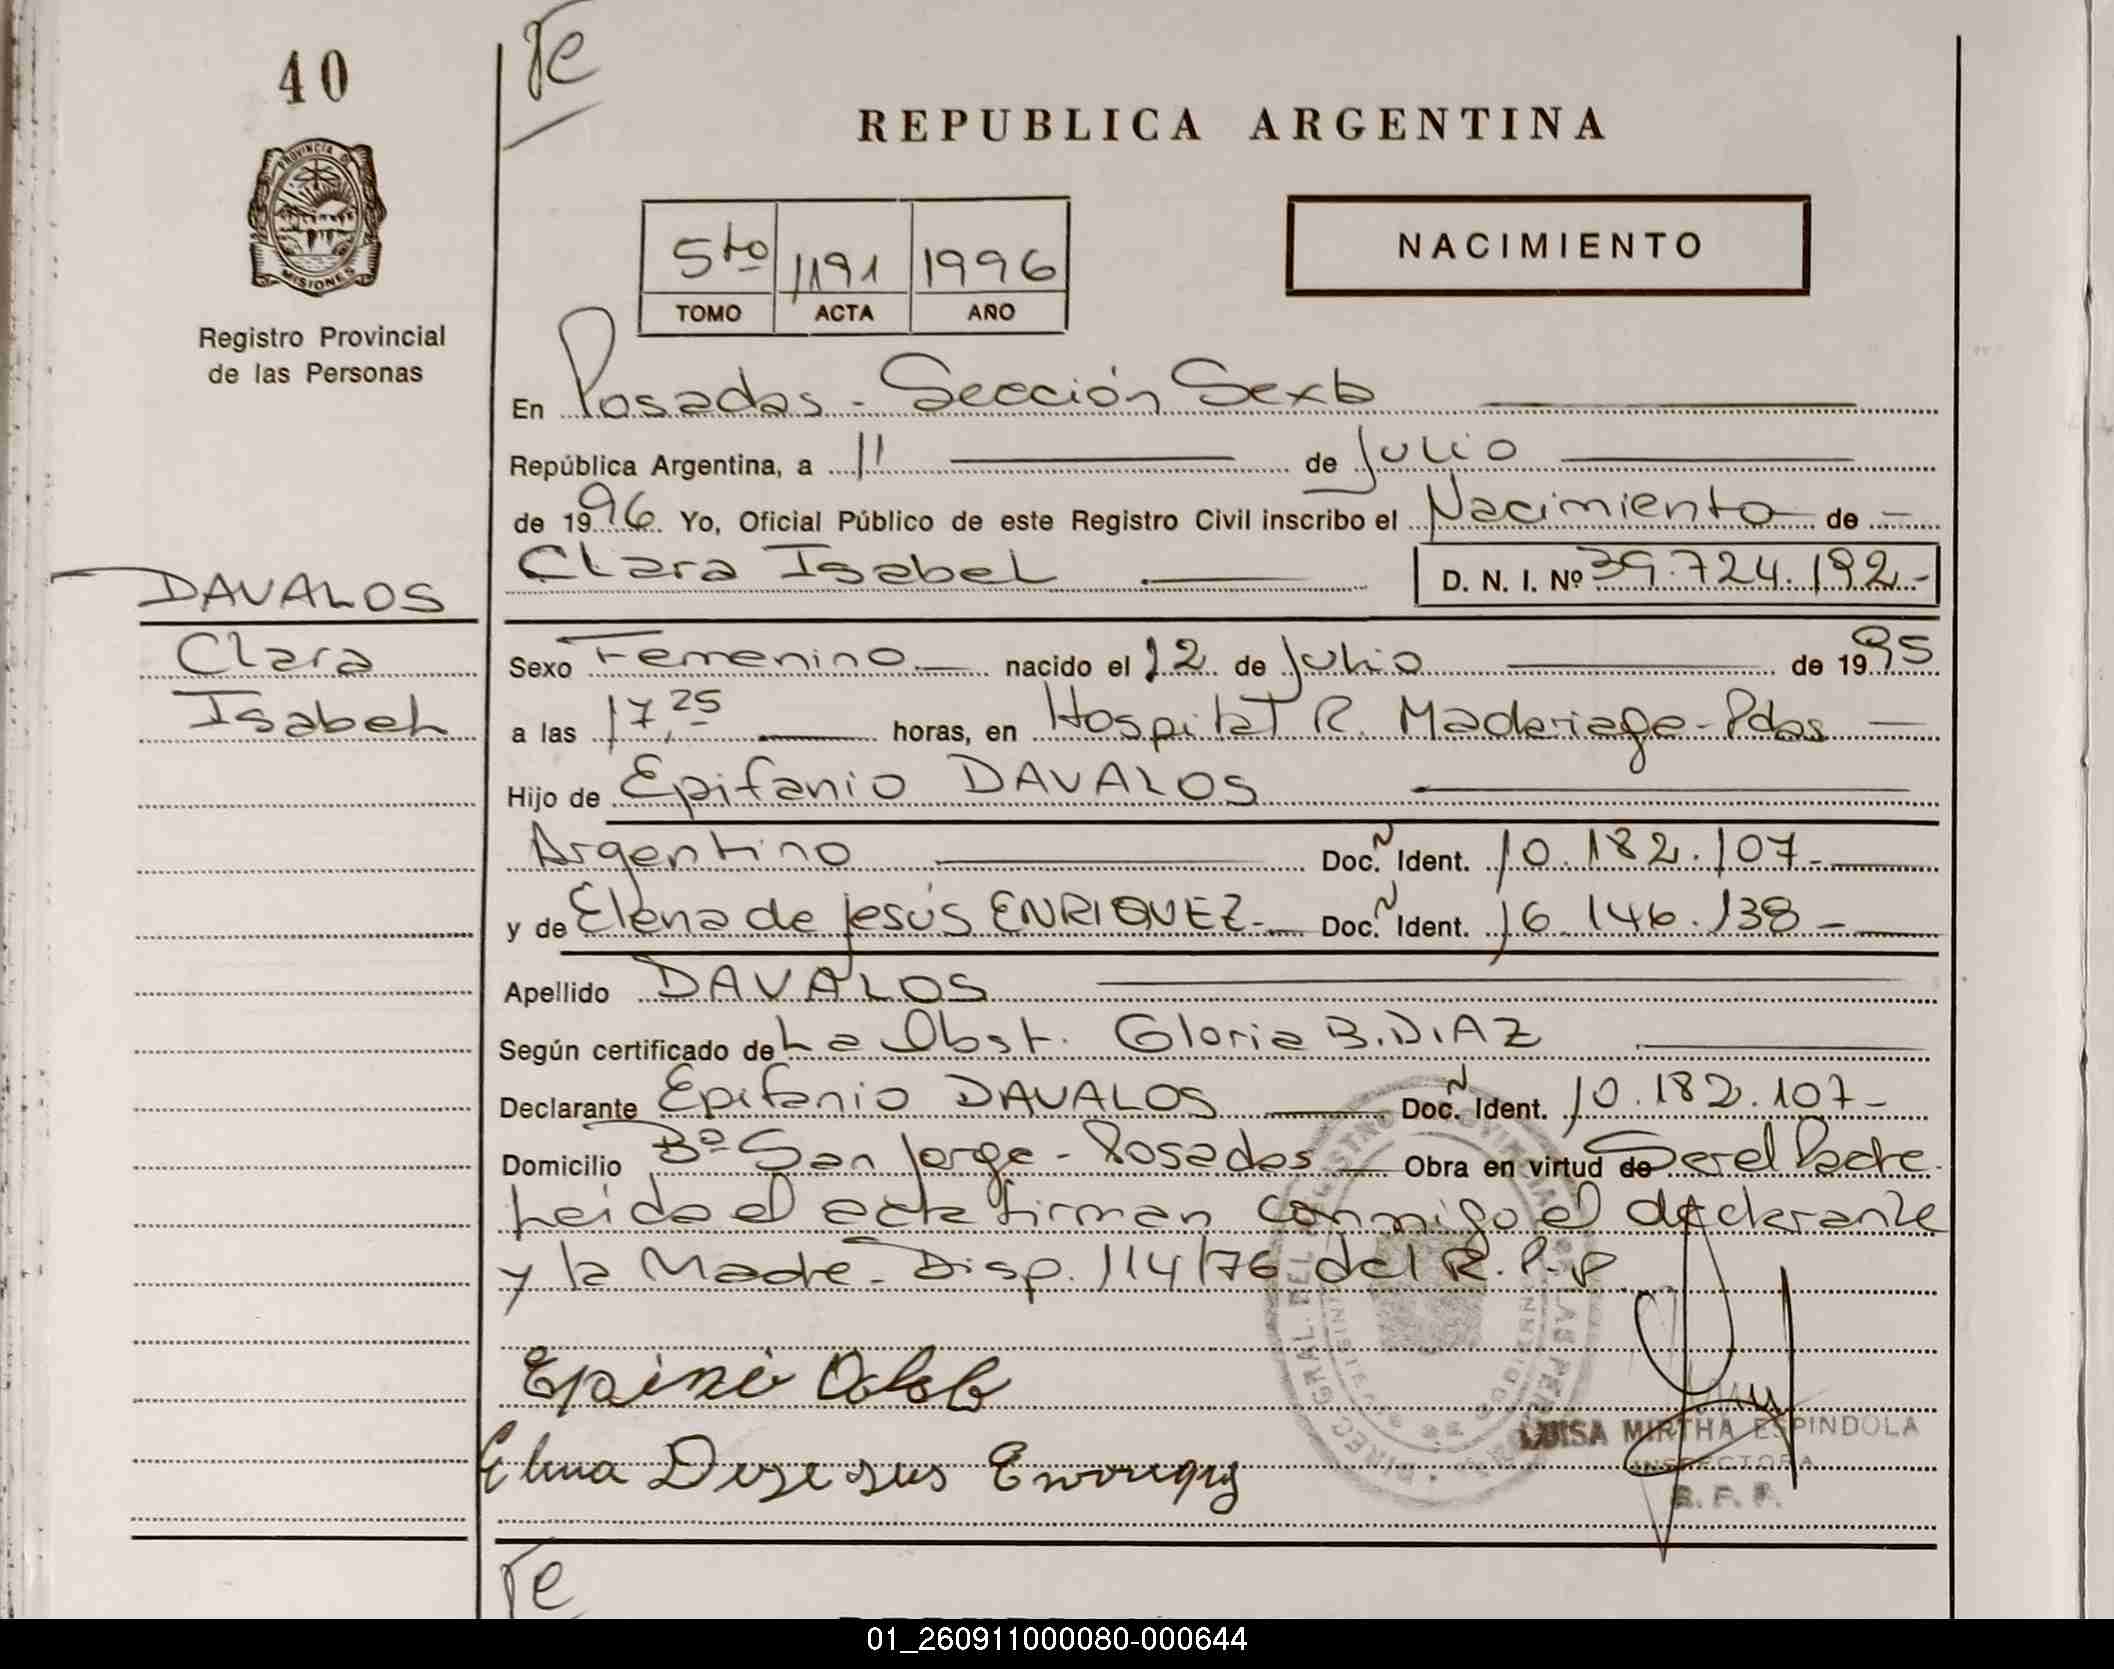 40
REPUBLICA ARGENTINA
PROVINCIA DE
MISIONES
Registro Provincial
de las Personas
5to 1191 1996
TOMO ACTA AÑO
NACIMIENTO
En Posadas - Sección Sexta
República Argentina, a 11 de Julio
de 1996 Yo, Oficial Público de este Registro Civil inscribo el Nacimiento de -
Clara Isabel D. N. I. Nº 39.724.192.-
DAVALOS
Clara
Isabel
Sexo Femenino nacido el 12 de Julio de 1995
a las 17,25 horas, en Hospital R. Madariaga - Pdas
Hijo de Epifanio DAVALOS
Argentino Doc. Ident. 10.182.107-
y de Elena de Jesús ENRIQUEZ- Doc. Ident. 16.146.138-
Apellido DAVALOS
Según certificado de La Obst. Gloria B. DIAZ
Declarante Epifanio DAVALOS Doc. Ident. 10.182.107-
Domicilio Bº San Jorge - Posadas Obra en virtud de Ser el Padre.
Leida el acta firman conmigo el declarante
y la Madre - Disp. 114/76 del R.P.P
Elena Dejesus Enriquez
LUISA MIRTHA ESPINDOLA
INSPECTORA
01_260911000080-000644